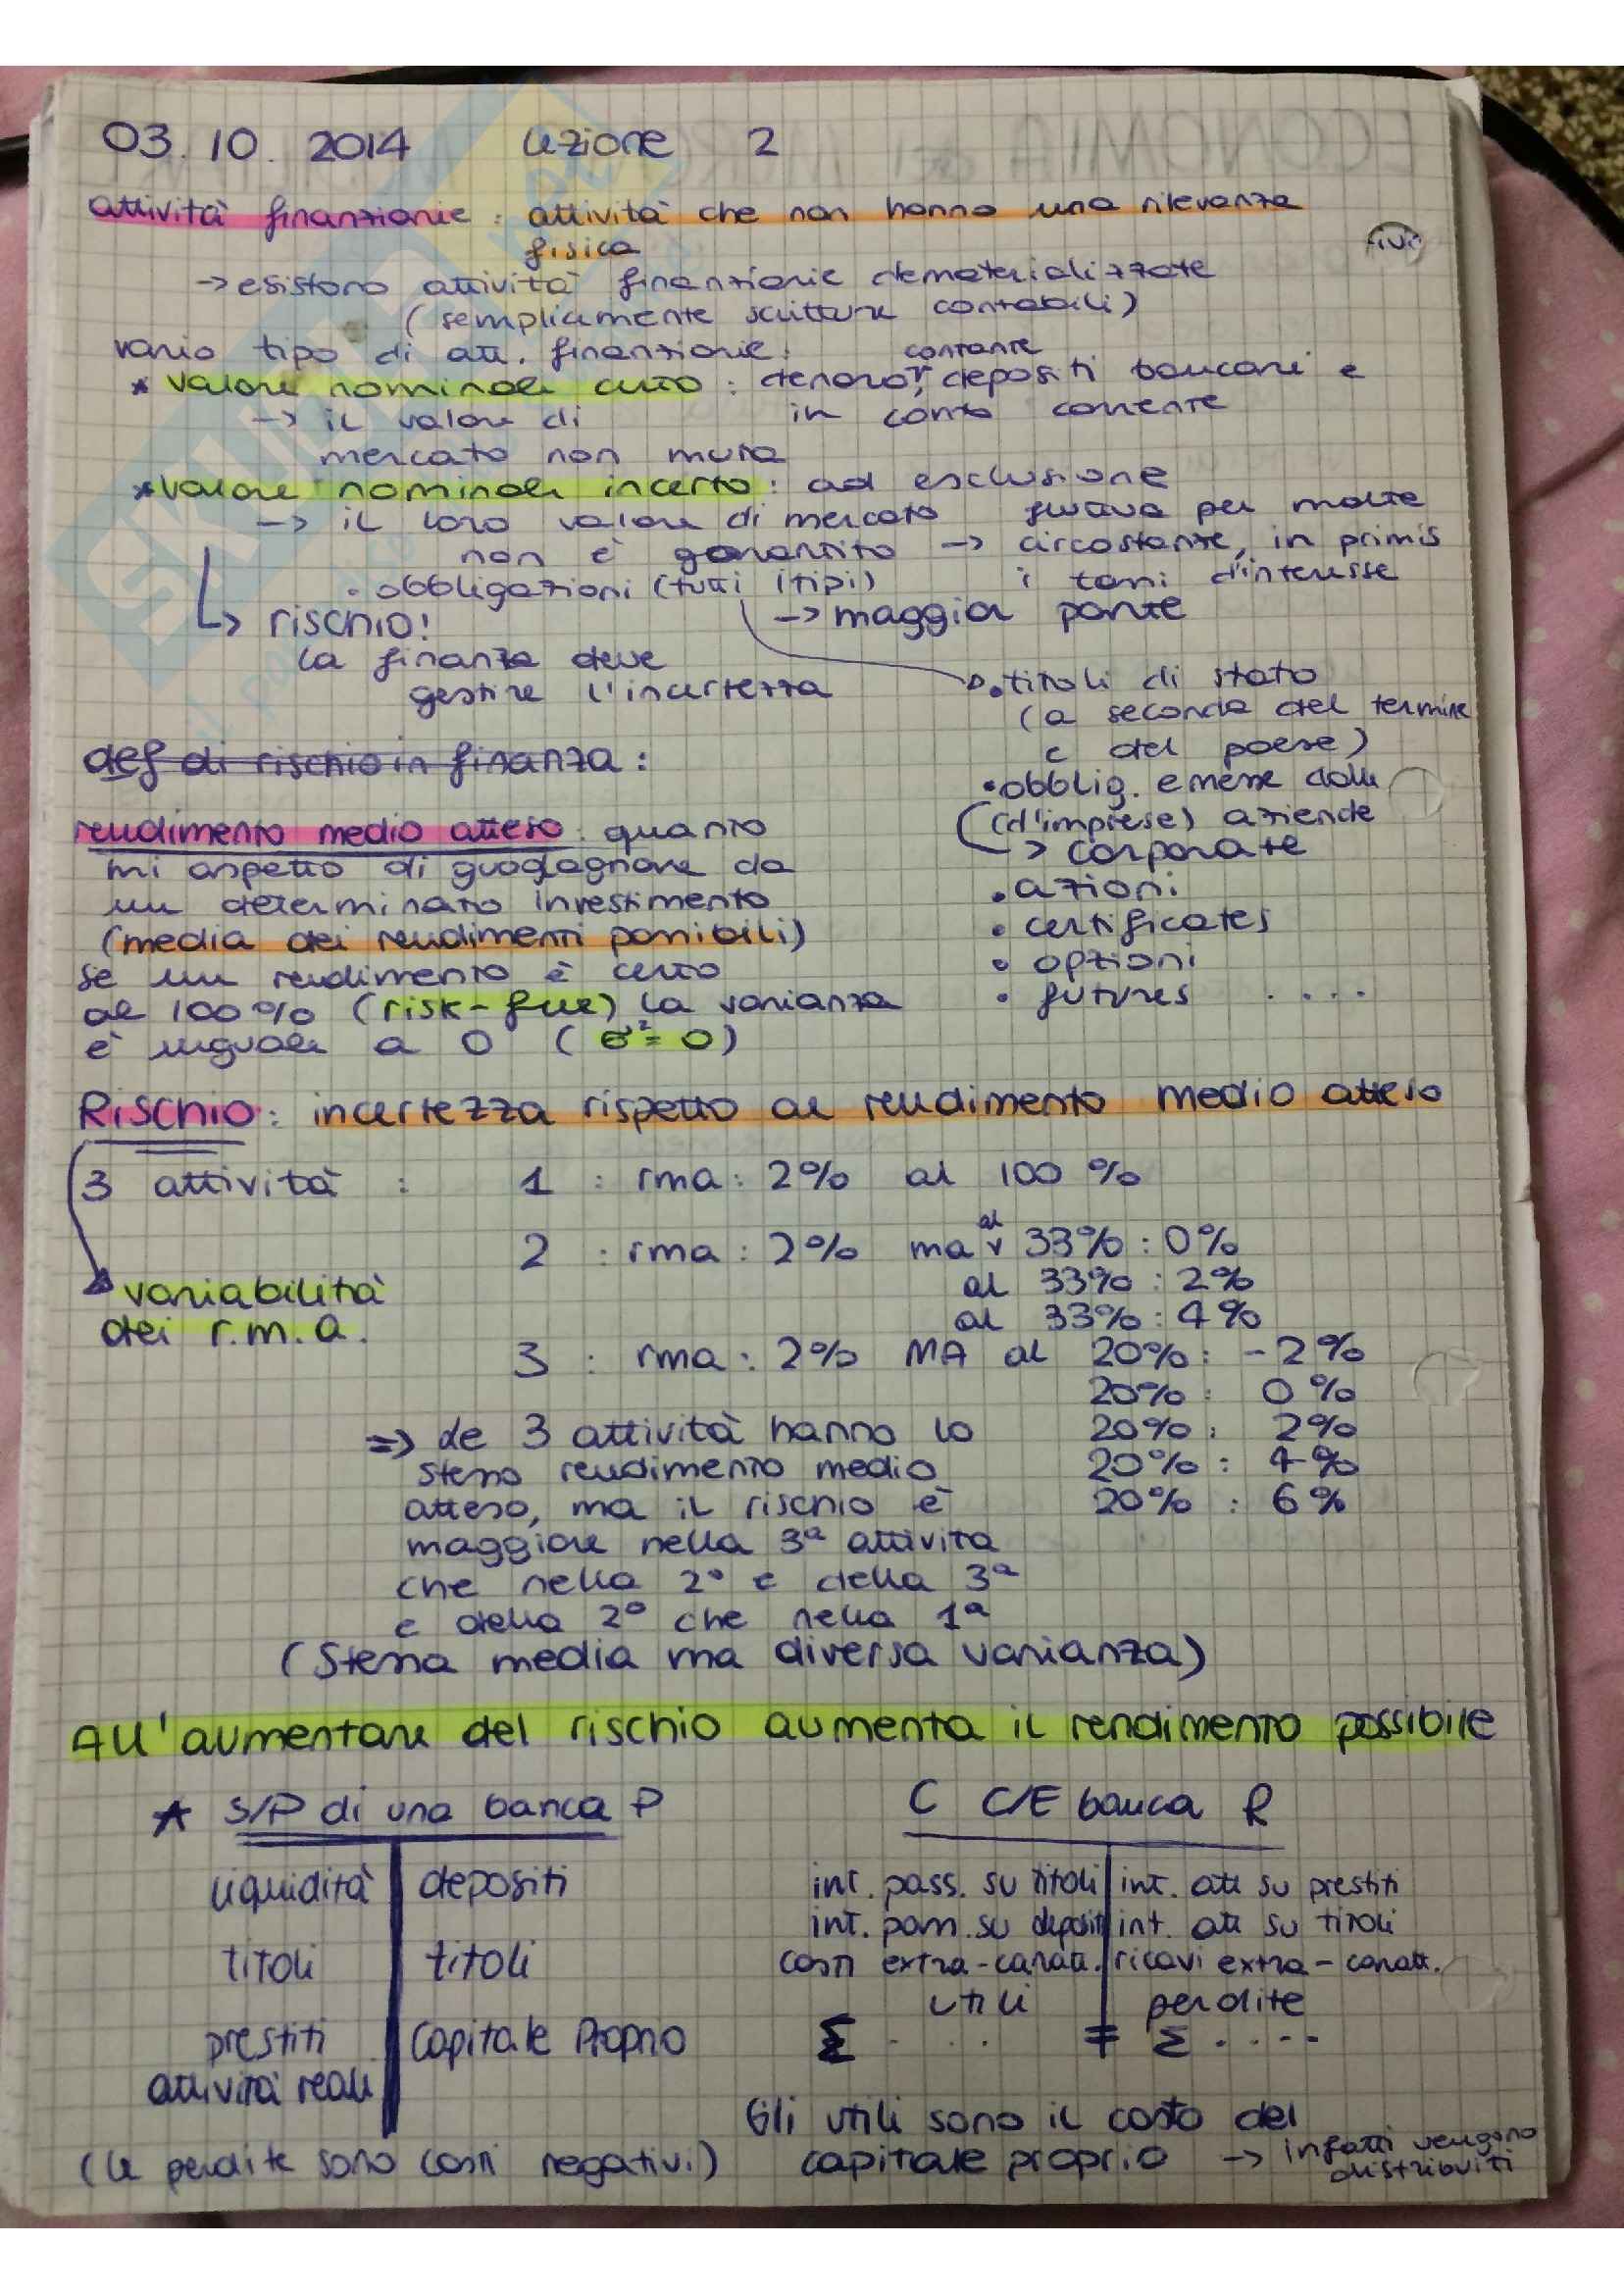 03.10.2014 Lezione 2
attività finanziarie : attività che non hanno una rilevanza
fisica
→ esistono attività finanziarie dematerializzate
(semplicemente scritture contabili)
vario tipo di att. finanziarie:
* valore nominale certo : denaro contante, depositi bancari e
in conto corrente
→ il valore di
mercato non muta
* valore nominale incerto : ad esclusione
→ il loro valore di mercato
non è garantito → fluttua per molte
circostanze, in primis
i tassi d'interesse
• obbligazioni (tutti i tipi)
→ maggior parte
↳ rischio!
la finanza deve
gestire l'incertezza
• titoli di stato
(a seconda del termine
e del paese)
• obblig. emesse dalle
(d'imprese) aziende
→ corporate
• azioni
• certificates
• opzioni
• futures ....
def di rischio in finanza :
rendimento medio atteso : quanto
mi aspetto di guadagnare da
un determinato investimento
(media dei rendimenti possibili)
se un rendimento è certo
al 100% (risk-free) la varianza
è uguale a 0 (σ² = 0)
Rischio : incertezza rispetto al rendimento medio atteso
3 attività : 1 : rma : 2% al 100 %
2 : rma : 2% ma al 33% : 0%
al 33% : 2%
al 33% : 4%
variabilità
dei r.m.a.
3 : rma : 2% MA al 20% : -2%
20% : 0%
20% : 2%
20% : 4%
20% : 6%
=> Le 3 attività hanno lo
stesso rendimento medio
atteso, ma il rischio è
maggiore nella 3ª attività
che nella 2° e della 3ª
e della 2° che nella 1ª
(Stessa media ma diversa varianza)
All'aumentare del rischio aumenta il rendimento possibile
* S/P di una banca P
liquidità depositi
titoli titoli
prestiti Capitale Proprio
attività reali
(le perdite sono costi negativi)
C C/E banca R
int. pass. su titoli int. att su prestiti
int. pass. su depositi int. att su titoli
costi extra-caratt. ricavi extra-caratt.
utili perdite
Σ ... = Σ ....
Gli utili sono il costo del
capitale proprio → infatti vengono
distribuiti